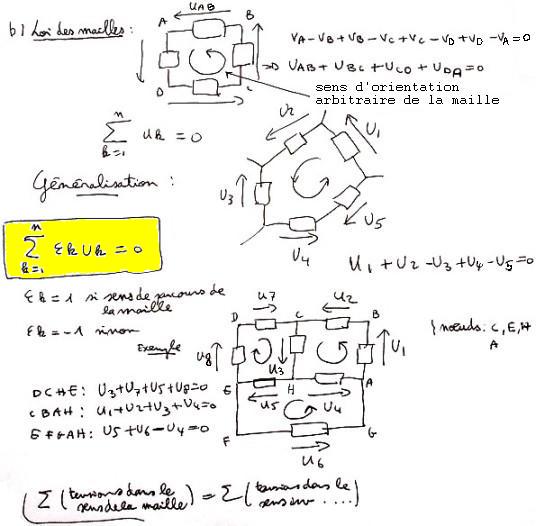 b) Loi des mailles :
U_AB
A B
D C
V_A - V_B + V_B - V_C + V_C - V_D + V_D - V_A = 0
=> U_AB + U_BC + U_CD + U_DA = 0
sens d'orientation
arbitraire de la maille
n
∑ U_k = 0
k=1
U_2
U_1
U_3
U_5
U_4
Généralisation :
n
∑ ε_k U_k = 0
k=1
U_1 + U_2 - U_3 + U_4 - U_5 = 0
ε_k = 1 si sens de parcours de
la maille
ε_k = -1 sinon
Exemple
U_7 U_2
D C B
U_8 U_3 U_1
E H A
U_5 U_4
F G
U_6
} nœuds : C, E, H
A
DCHE : U_3 + U_7 + U_5 + U_8 = 0
CBAH : U_1 + U_2 + U_3 + U_4 = 0
EFGAH : U_5 + U_6 - U_4 = 0
∑ (tensions dans le sens de la maille) = ∑ (tensions dans le sens inv ....)